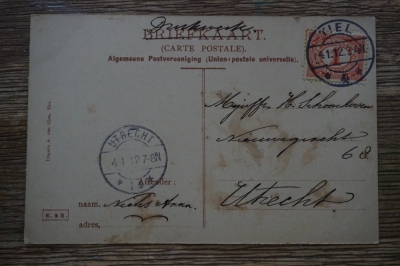 Drukwerk.
BRIEFKAART.
(CARTE POSTALE).
Algemeene Postvereeniging (Union postale universelle).
TIEL
4.1.12.7-8N
1
Mejuffr H. Schoonhoven
Nieuwegracht
68
Utrecht
UTRECHT
4.1.12.7-8N
Afzender:
naam, Nicht Anna
adres,
K. & B.